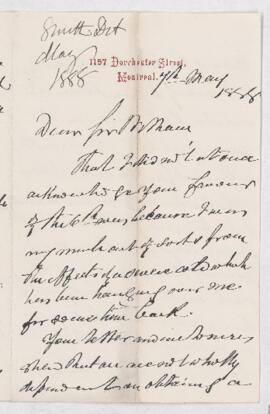 Smith Dt
May
1888
1157 Dorchester Street,
Montreal.
7th May
1888
Dear Sir William
That I did not at once
acknowledge your favour
of the 6th was because I was
very much out of sorts from
the effects of a severe cold which
has been hanging over me
for some time back.
Your letter and enclosures
show that we are not wholly
dependent on obtaining a